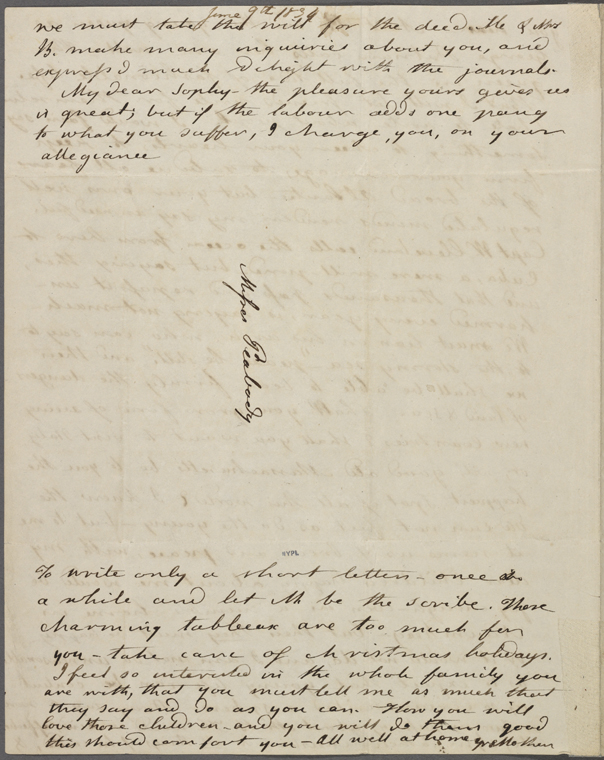 June 9th 1834
we must take the will for the deed. He & Mrs
B. make many inquiries about you, and
express'd much delight with the journals.
My dear Sophy - the pleasure yours gives us
is great; but if the labour adds one pang
to what you suffer, I charge, you, on your
allegiance
Misses Peabody
NYPL
To write only a short letter - once
a while and let M be the scribe. Those
charming tableeux are too much for
you - take care of christmas holidays.
I feel so interested in the whole family you
are with, that you must tell me as much that
they say and do as you can. How you will
love those children - and you will do them good
this should comfort you - All well at home yr Mother